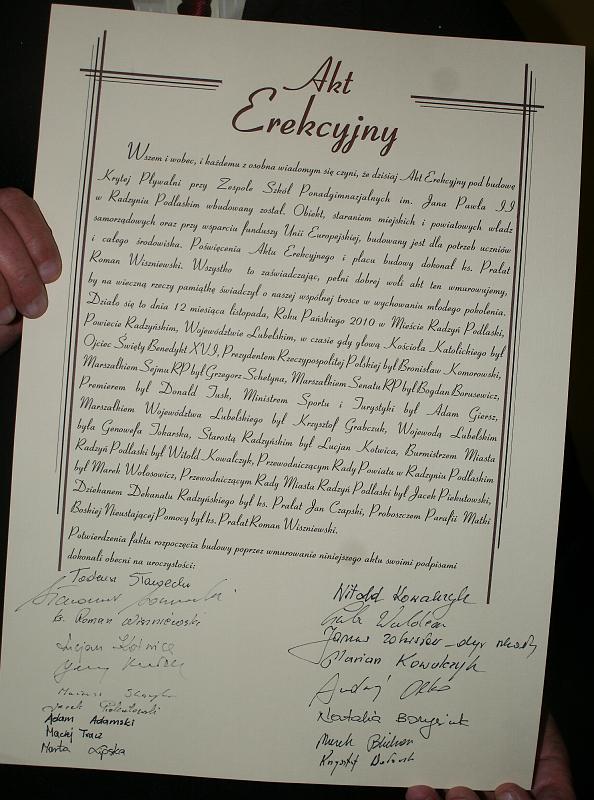 Akt
Erekcyjny
Wszem i wobec, i każdemu z osobna wiadomym się czyni, że dzisiaj Akt Erekcyjny pod budowę
Krytej Pływalni przy Zespole Szkół Ponadgimnazjalnych im. Jana Pawła II
w Radzyniu Podlaskim wbudowany został. Obiekt, staraniem miejskich i powiatowych władz
samorządowych oraz przy wsparciu funduszy Unii Europejskiej, budowany jest dla potrzeb uczniów
i całego środowiska. Poświęcenia Aktu Erekcyjnego i placu budowy dokonał ks. Prałat
Roman Wiszniewski. Wszystko to zaświadczając, pełni dobrej woli akt ten wmurowujemy,
by na wieczną rzeczy pamiątkę świadczył o naszej wspólnej trosce w wychowaniu młodego pokolenia.
Działo się to dnia 12 miesiąca listopada, Roku Pańskiego 2010 w Mieście Radzyń Podlaski,
Powiecie Radzyńskim, Województwie Lubelskim, w czasie gdy głową Kościoła Katolickiego był
Ojciec Święty Benedykt XVI, Prezydentem Rzeczypospolitej Polskiej był Bronisław Komorowski,
Marszałkiem Sejmu RP był Grzegorz Schetyna, Marszałkiem Senatu RP był Bogdan Borusewicz,
Premierem był Donald Tusk, Ministrem Sportu i Turystyki był Adam Giersz,
Marszałkiem Województwa Lubelskiego był Krzysztof Grabczuk, Wojewodą Lubelskim
była Genowefa Tokarska, Starostą Radzyńskim był Lucjan Kotwica, Burmistrzem Miasta
Radzyń Podlaski był Witold Kowalczyk, Przewodniczącym Rady Powiatu w Radzyniu Podlaskim
był Marek Wołosowicz, Przewodniczącym Rady Miasta Radzyń Podlaski był Jacek Piekutowski,
Dziekanem Dekanatu Radzyńskiego był ks. Prałat Jan Czapski, Proboszczem Parafii Matki
Boskiej Nieustającej Pomocy był ks. Prałat Roman Wiszniewski.
Potwierdzenia faktu rozpoczęcia budowy poprzez wmurowanie niniejszego aktu swoimi podpisami
dokonali obecni na uroczystości:
Tadeusz Sławecki
ks. Roman Wiszniewski
Lucjan Kotwica
Jerzy
Mariusz Skoczylas
Jacek Piekutowski
Adam Adamski
Maciej Tracz
Marta Lipska
Witold Kowalczyk
Janusz
Marian Kowalczyk
Andrzej
Natalia
Marek
Krzysztof